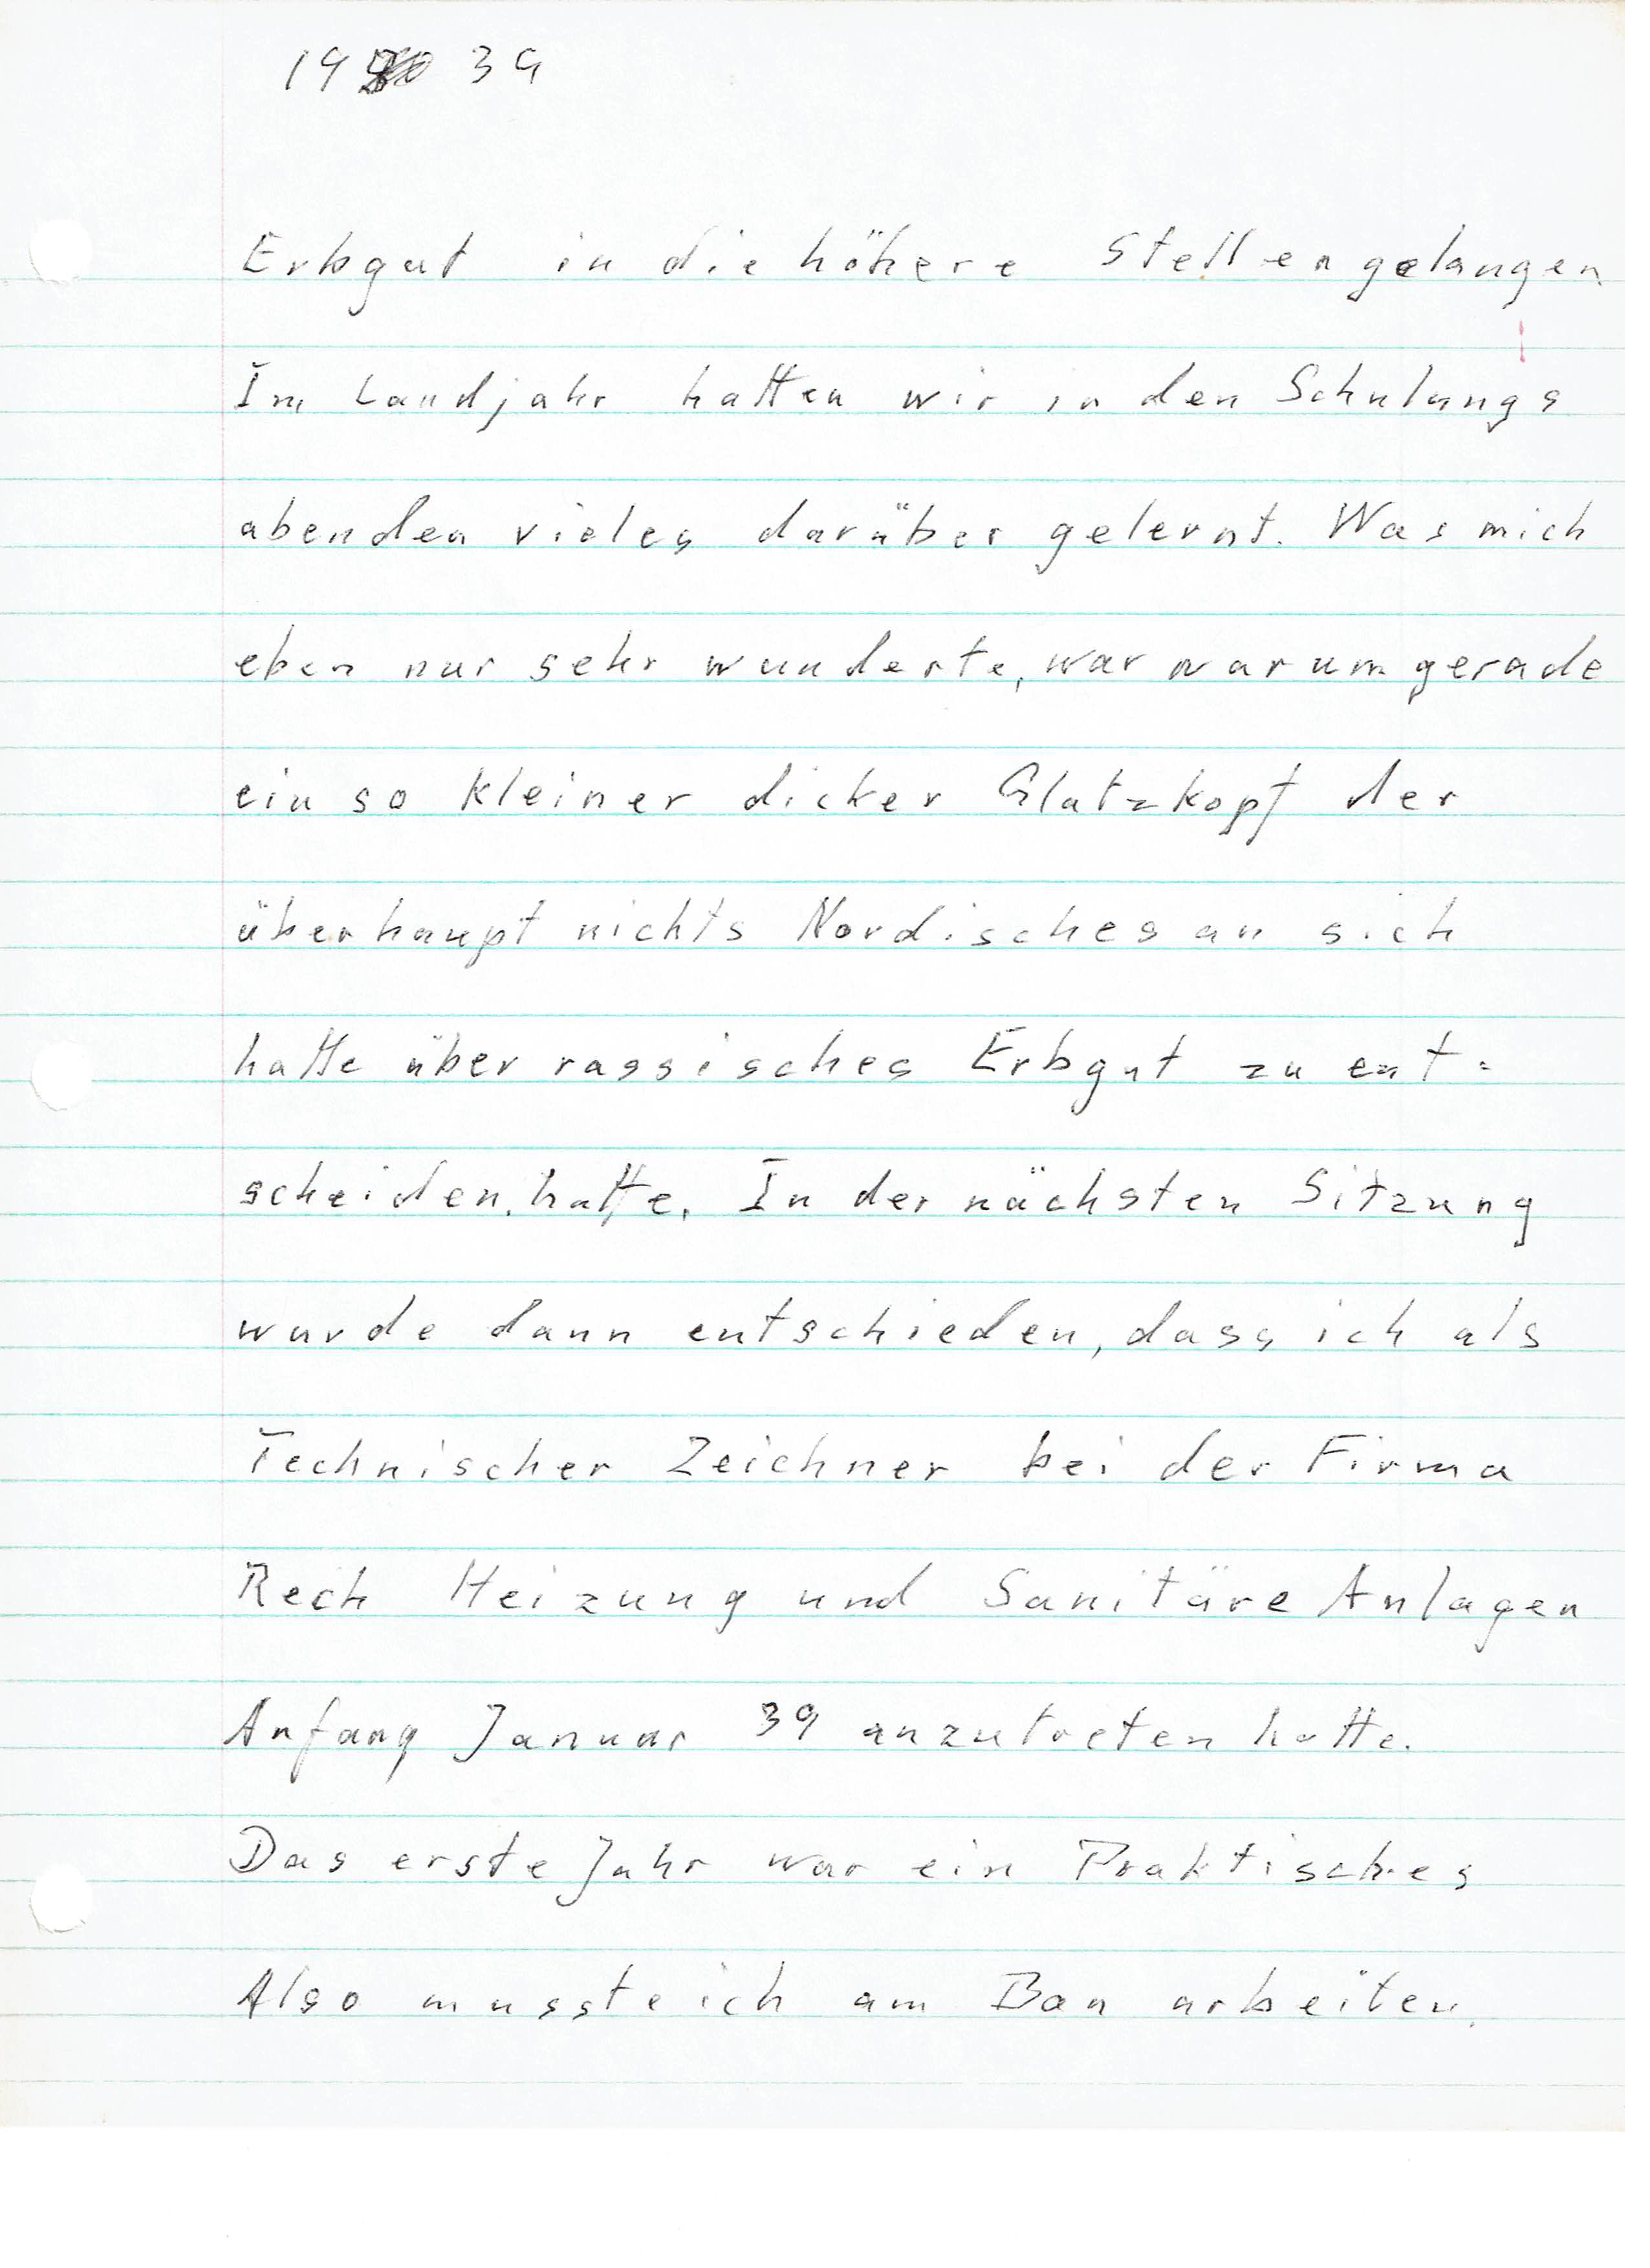 19 39
Erbgut in die höhere Stellen gelangen.
Im Landjahr hatten wir in den Schulungs
abenden vieles darüber gelernt. Was mich
eben nur sehr wunderte, war warum gerade
ein so kleiner dicker Glatzkopf der
überhaupt nichts Nordisches an sich
hatte über rassisches Erbgut zu ent=
scheiden hatte. In der nächsten Sitzung
wurde dann entschieden, dass ich als
Technischer Zeichner bei der Firma
Rech Heizung und Sanitäre Anlagen
Anfang Januar 39 anzutreten hatte.
Das erste Jahr war ein Praktisches
Also musste ich am Bau arbeiten.